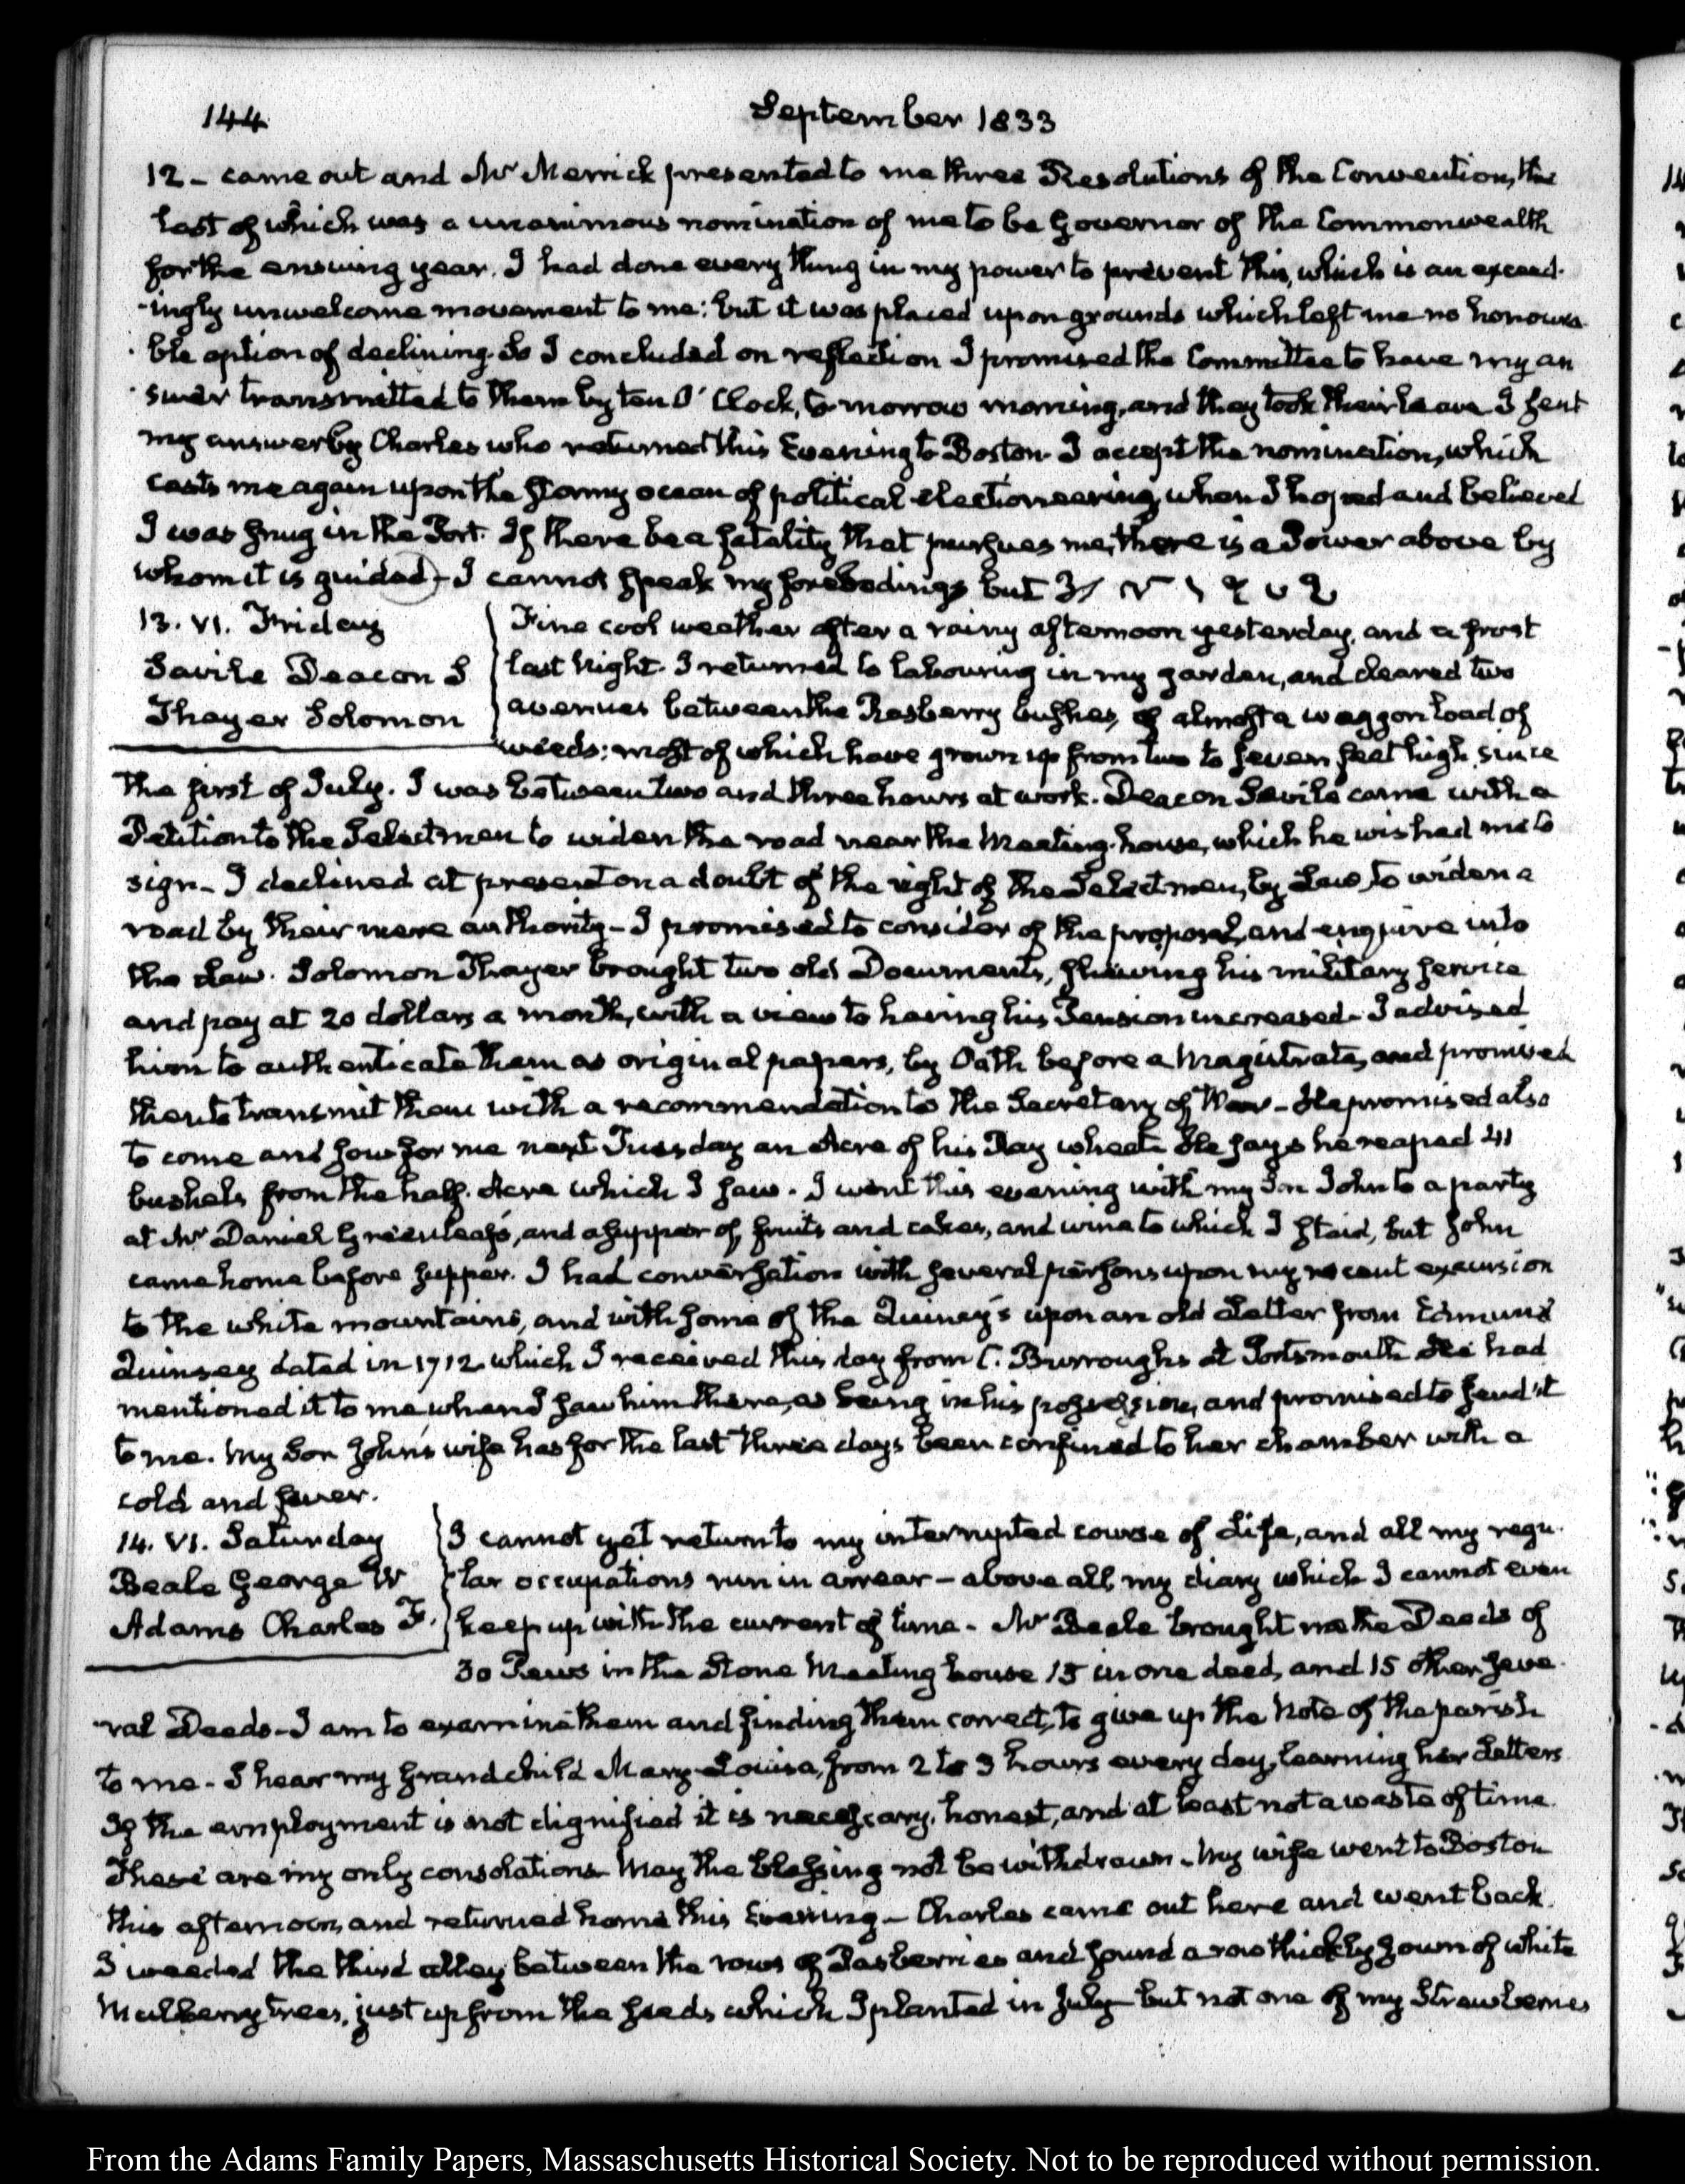 144
September 1833
12 - came out and Mr Merrick presented to me three Resolutions of the Convention, the
last of which was a unanimous nomination of me to be Governor of the Commonwealth
for the ensuing year. I had done every thing in my power to prevent this, which is an exceed-
-ingly unwelcome movement to me: but it was placed upon grounds which left me no honoura-
ble option of declining. So I concluded on reflection I promised the Committee to have my an
swer transmitted to them by ten O' Clock, to-morrow morning, and they took their leave. I sent
my answer by Charles who returned this Evening to Boston. I accept the nomination, which
casts me again upon the stormy ocean of political electioneering, when I hoped and believed
I was snug in the Port. If there be a fatality that pursues me, there is a Power above by
whom it is guided - I cannot speak my forebodings but
13. VI. Friday
Savile Deacon S
Thayer Solomon
Fine cool weather after a rainy afternoon yesterday, and a frost
last Night. I returned to labouring in my garden, and cleared two
avenues between the Rasberry bushes, of almost a waggon load of
weeds; most of which have grown up from two to seven feet high, since
the first of July. I was between two and three hours at work. Deacon Savile came with a
Petition to the Selectmen to widen the road near the Meeting-house, which he wished me to
sign - I declined at present on a doubt of the right of the Selectmen, by Law, to widen a
road by their mere authority - I promised to consider of the proposal, and enquire into
the Law. Solomon Thayer brought two old Documents, shewing his military service
and pay at 20 dollars a month, with a view to having his Pension increased. I advised
him to authenticate them as original papers, by Oath before a Magistrate, and promised
then to transmit them with a recommendation to the Secretary of War - He promised also
to come and sow for me next Tuesday an Acre of his Day wheat. He says he reaped 41
bushels from the half-Acre which I saw. I went this evening with my Son John to a party
at Mr Daniel Greenleaf's, and a supper of fruits and cakes, and wine to which I staid, but John
came home before supper. I had conversation with several persons upon my recent excursion
to the white mountains, and with some of the Quincy's upon an old Letter from Edmund
Quinsey dated in 1712 which I received this day from C. Burroughs at Portsmouth He had
mentioned it to me when I saw him there, as being in his possession, and promised to send it
to me. My Son John's wife has for the last three days been confined to her chamber with a
cold and fever.
14. VI. Saturday
Beale George W
Adams Charles F.
I cannot yet return to my interrupted course of Life, and all my regu-
lar occupations run in arrear - above all, my diary which I cannot even
keep up with the current of time - Mr Beale brought me the Deeds of
30 Pews in the Stone Meeting house 15 in one deed, and 15 other seve-
ral Deeds - I am to examine them and finding them correct, to give up the Note of the parish
to me - I hear my grandchild Mary-Louisa, from 2 to 3 hours every day, learning her Letters
If the employment is not dignified it is necessary, honest, and at least not a waste of time.
These are my only consolations May the blessing not be withdrawn - My wife went to Boston
this afternoon, and returned home this Evening - Charles came out here and went back.
I weeded the third alley between the rows of Rasberries and found a row thickly sown of white
Mulberry trees, just up from the seeds which I planted in July - but not one of my Strawberries
From the Adams Family Papers, Massachusetts Historical Society. Not to be reproduced without permission.